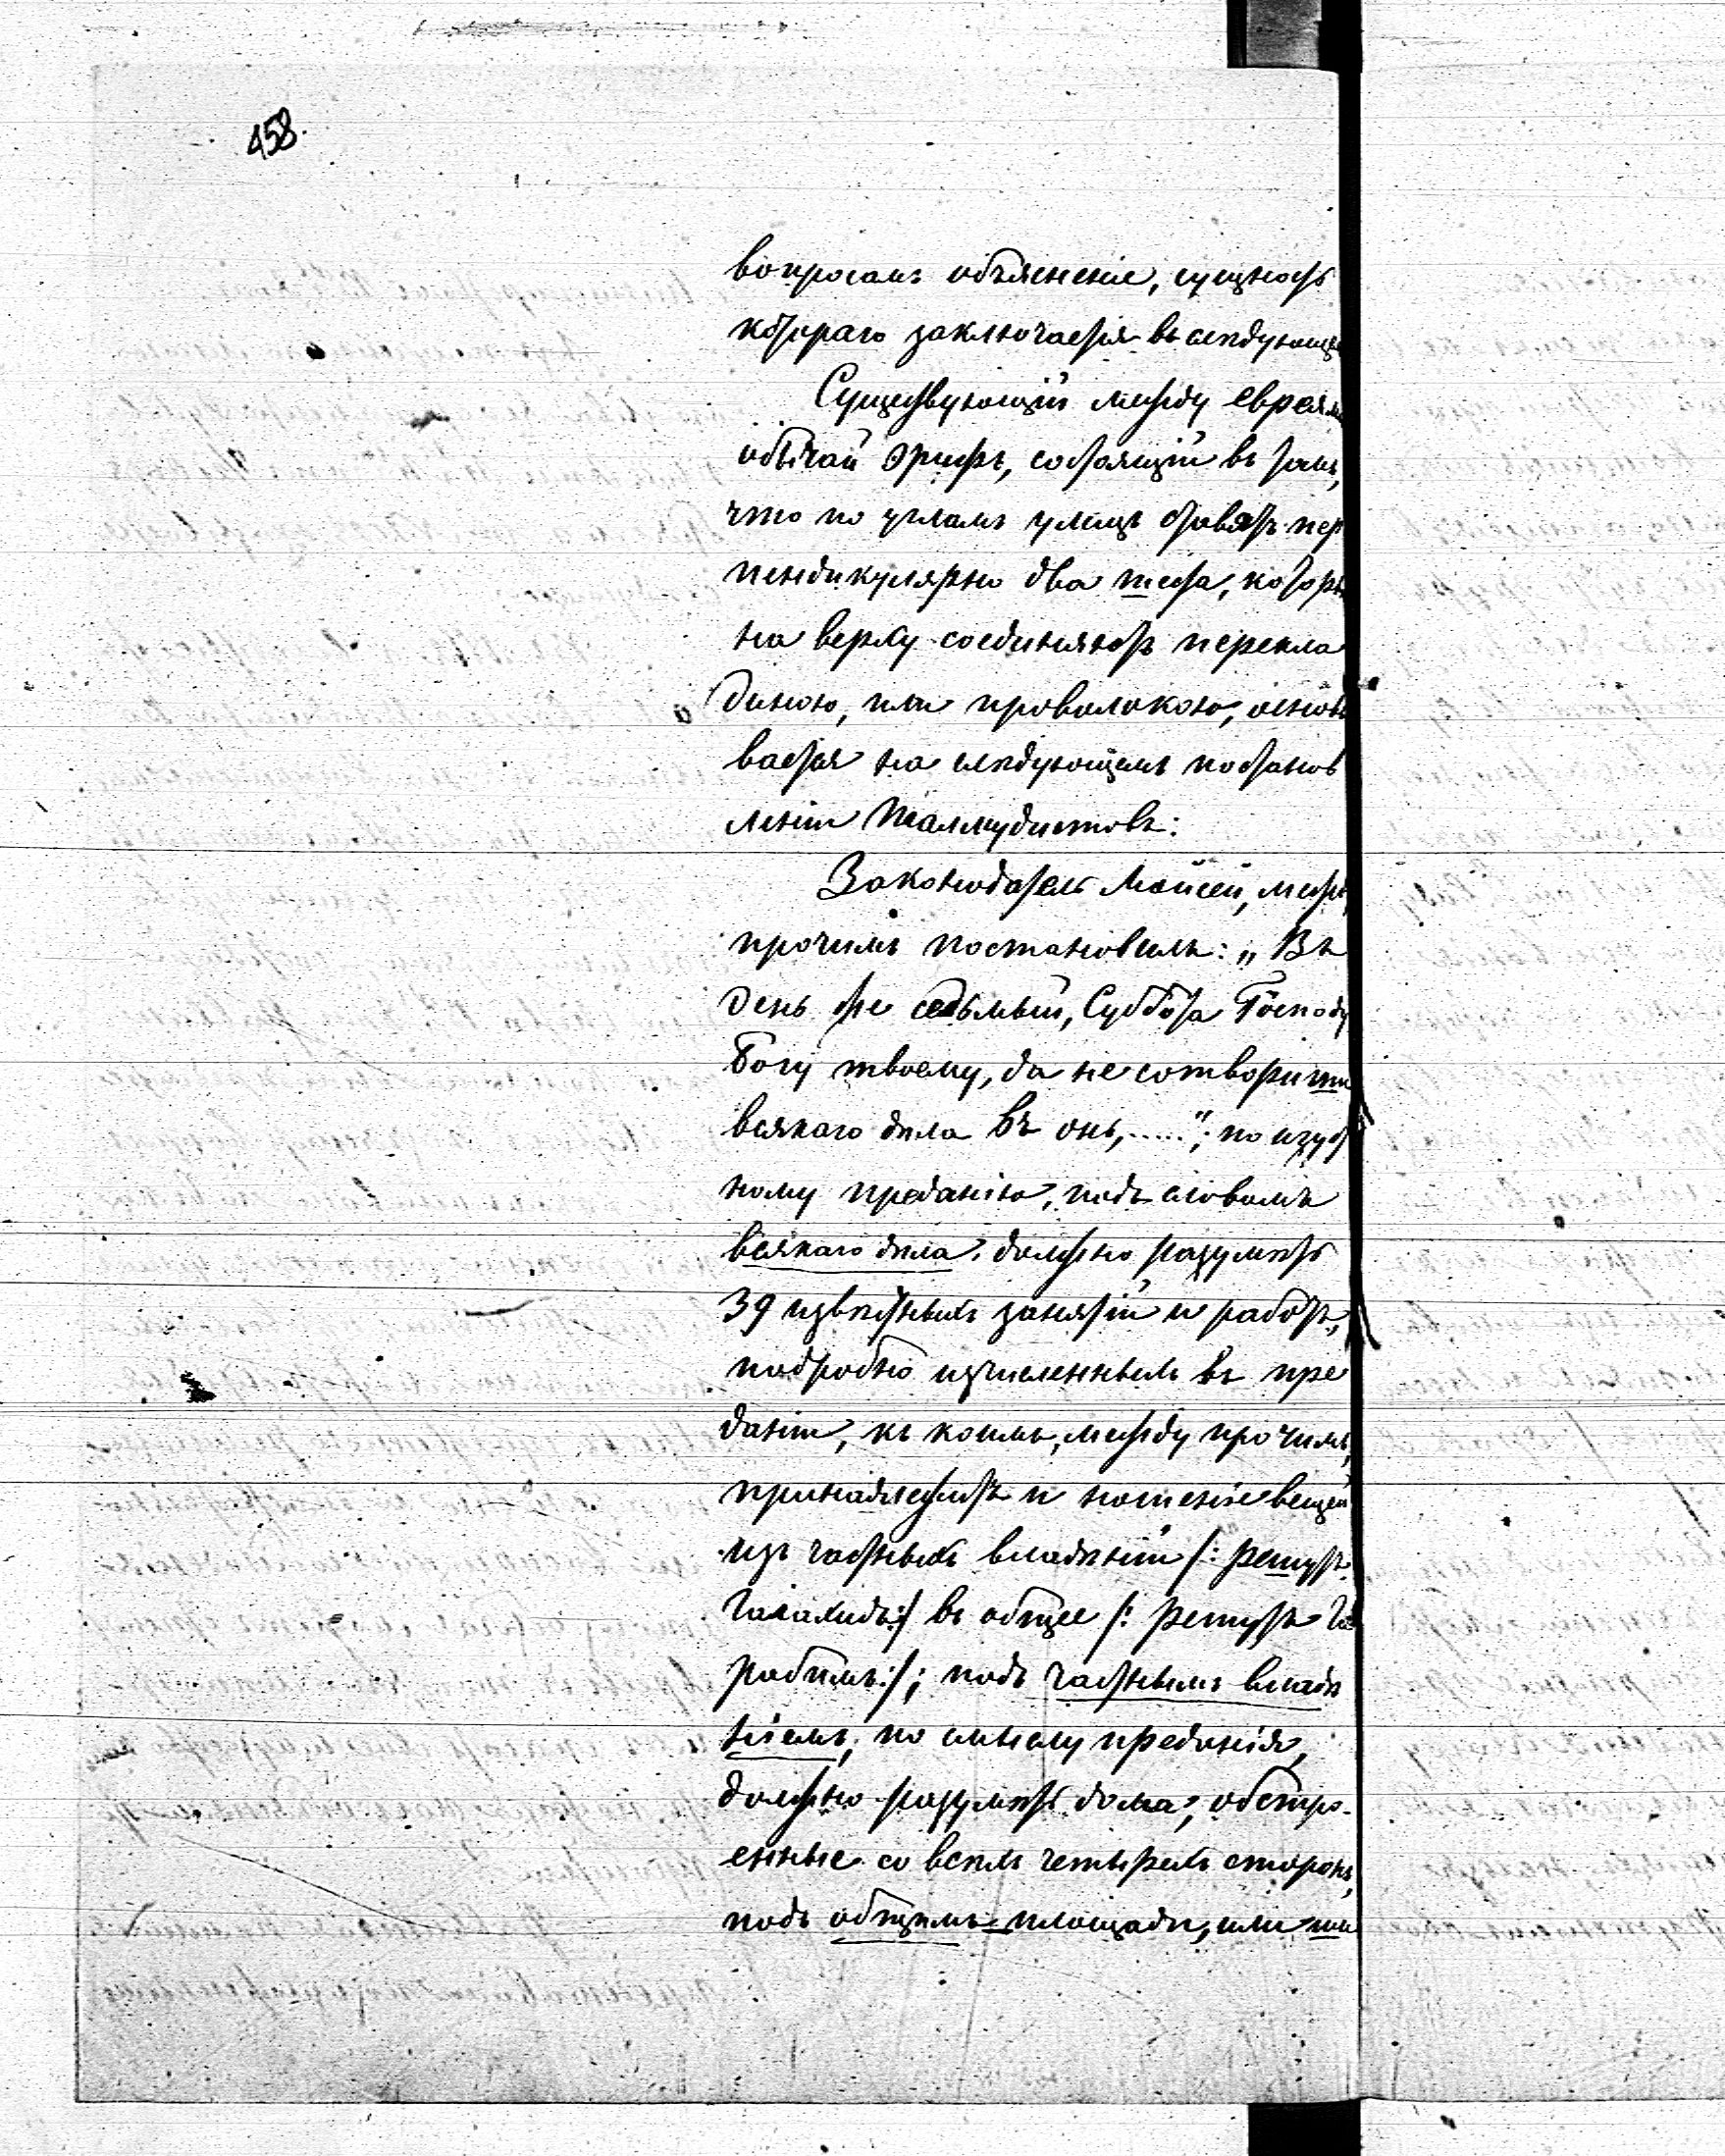 458.
вопросамъ объясненіе, сущность
котораго заключается въ слѣдующе
Существующій между евреями
обычай эрифъ, состоящій въ томъ,
что по угламъ улицъ ставятъ пер
пендикулярно два шеста, которы
на верху соединяютъ перекла
диною, или проволокою, основ
вается на слѣдующемъ постанов
леніи Талмудистовъ:
Законодатель Мойсей, межд
прочимъ постановилъ: „Въ
день же седьмый, Суббота Господу
Богу твоему, да не сотвориши
всякаго дѣла въ онь,.....“; по изуст
ному преданію, подъ словомъ
всякаго дѣла, должно разумѣть
39 извѣстныхъ занятій и работъ,
подробно изчисленныхъ въ пре
даніи, къ коимъ, между прочимъ,
принадлежитъ и ношеніе вещей
изъ частныхъ владѣній /: решутъ
гаіахидъ:/ въ общее /: решутъ га
рабимъ:/; подъ частнымъ владѣ
ніемъ, по смыслу преданія,
должно разумѣть дома, обстро-
енные со всѣхъ четырехъ сторонъ,
подъ общимъ = площади, или